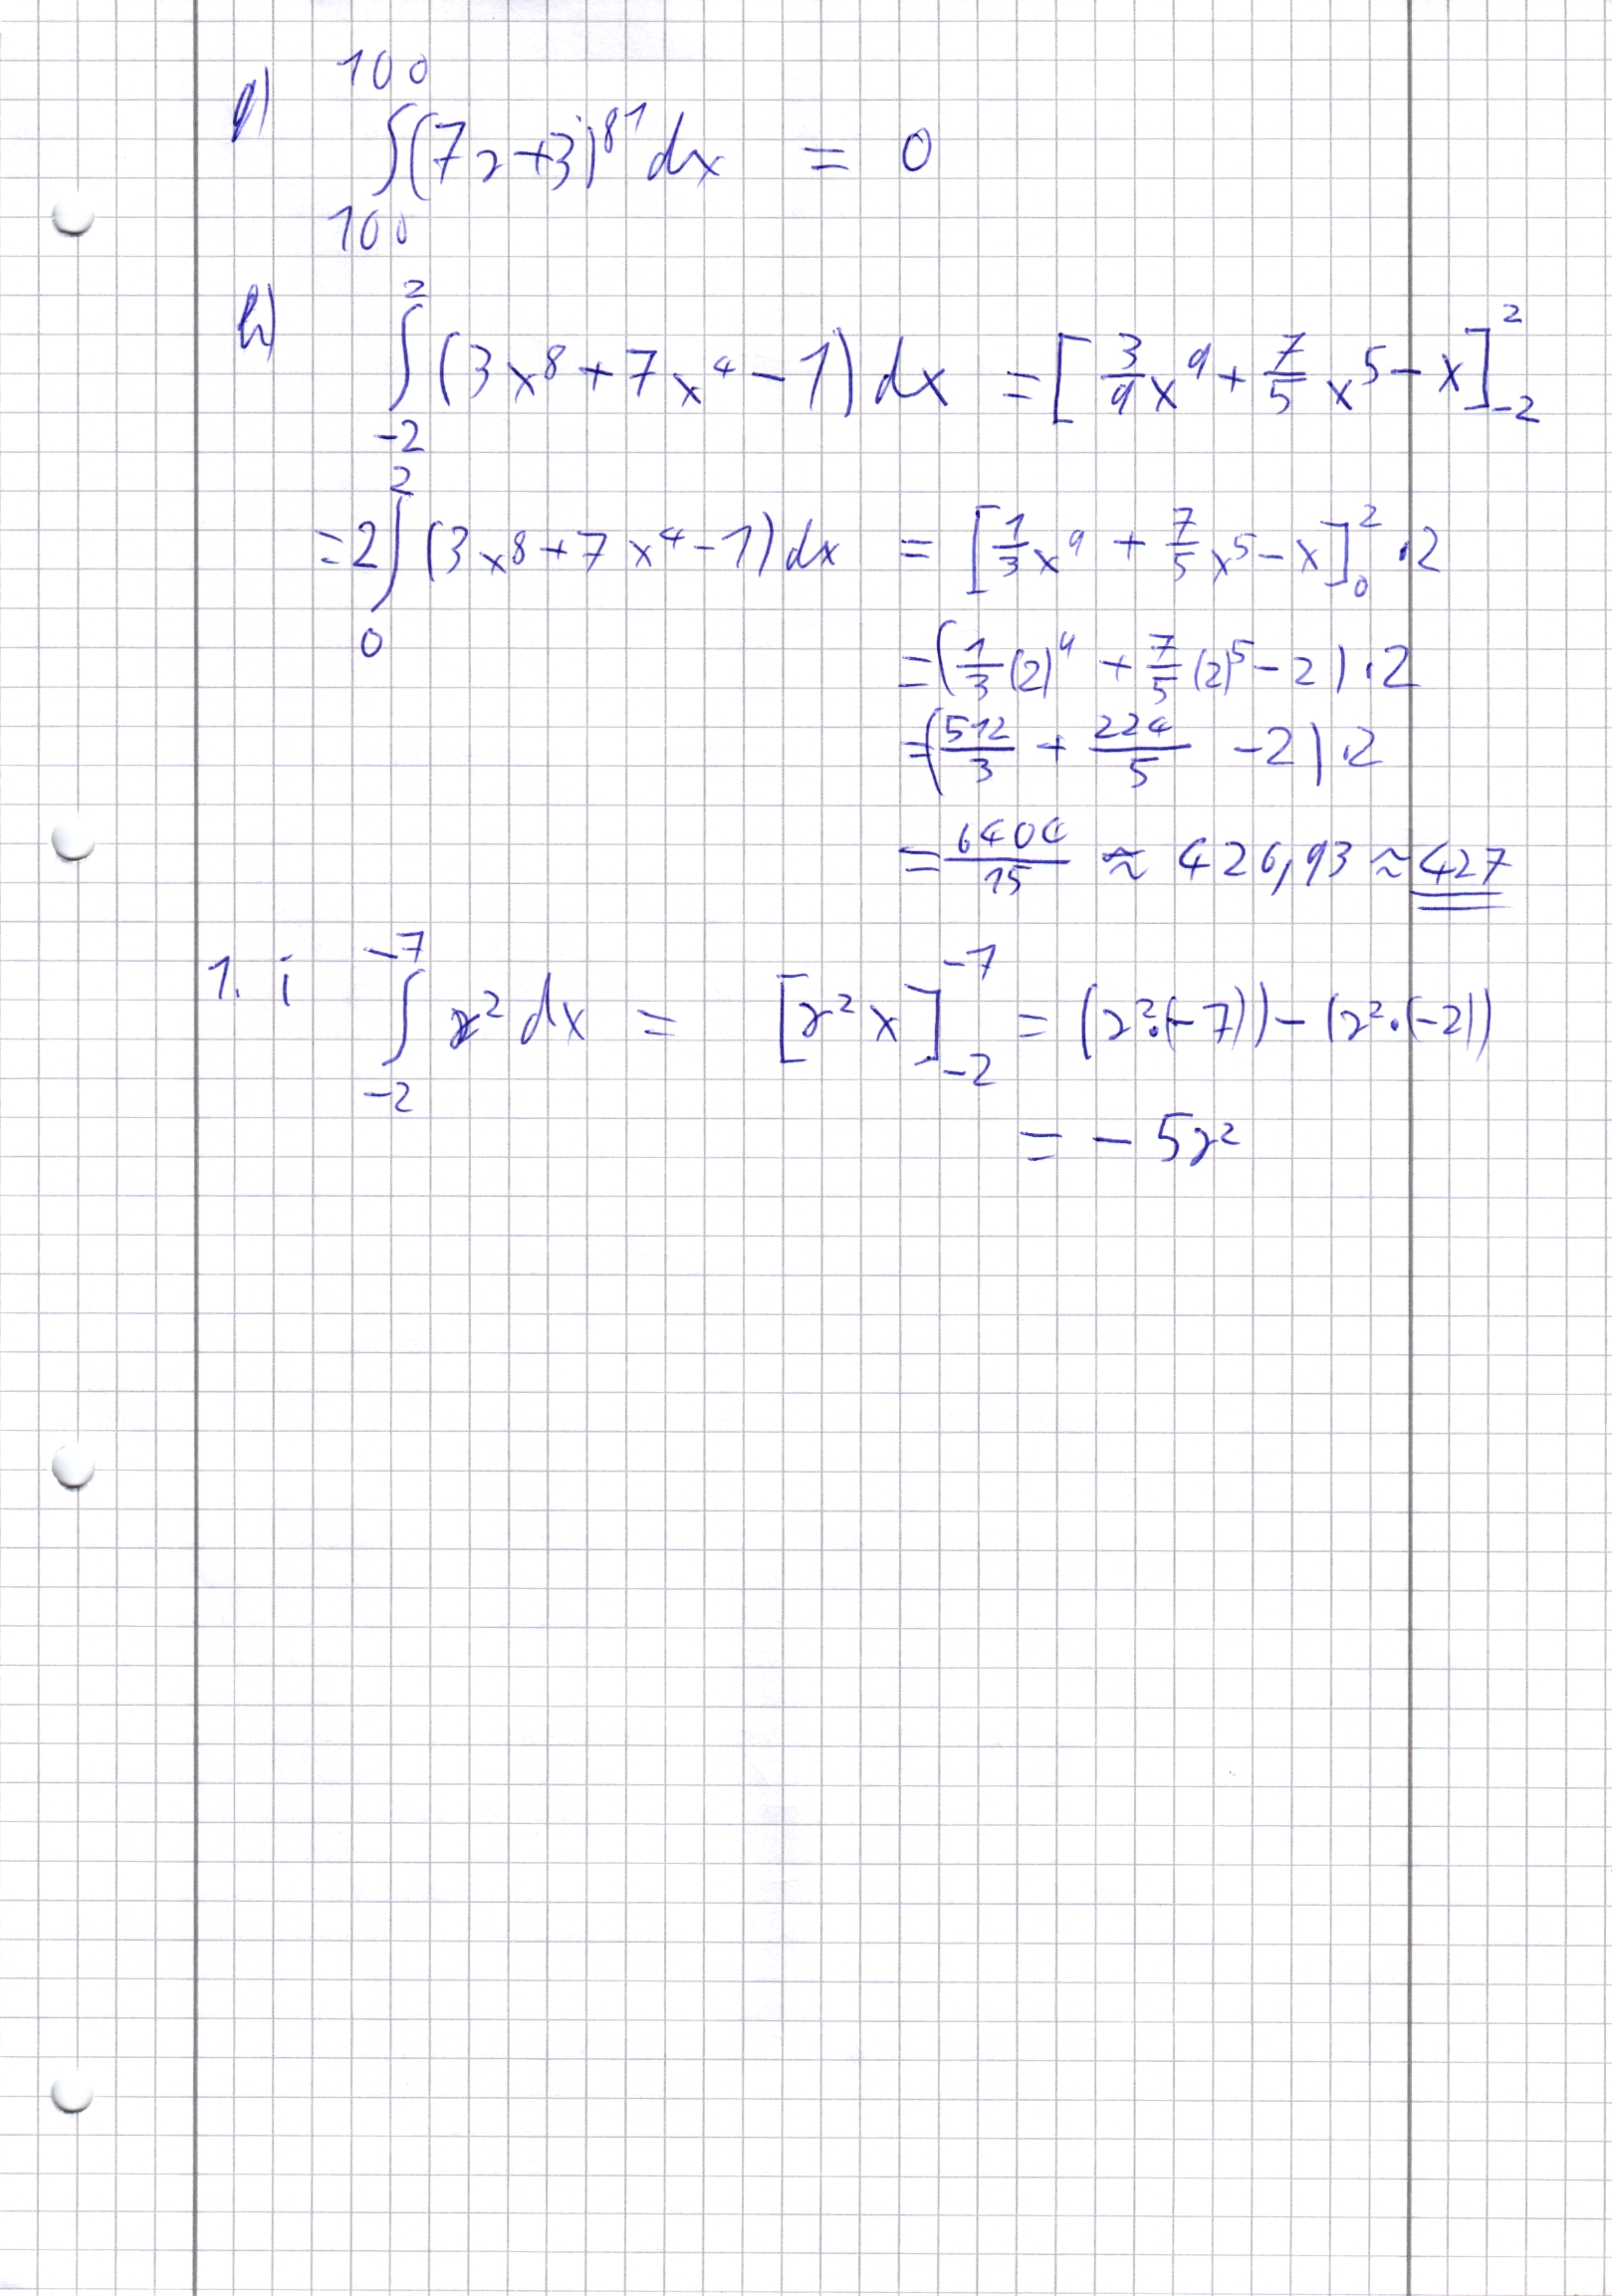 g) ∫₁₀₀¹⁰⁰ (7z+3)⁸¹ dx = 0
h) ∫₋₂² (3x⁸+7x⁴−1) dx = [3/9 x⁹ + 7/5 x⁵ − x]₋₂²
=2∫₀² (3x⁸+7x⁴−1) dx = [1/3 x⁹ + 7/5 x⁵ − x]₀² ·2
=(1/3 (2)⁹ + 7/5 (2)⁵ − 2)·2
=(512/3 + 224/5 −2)·2
= 6404/15 ≈ 426,93 ≈ 427
1. i ∫₋₂⁻⁷ z² dx = [z²x]₋₂⁻⁷ = (z²·(−7))−(z²·(−2))
= − 5z²